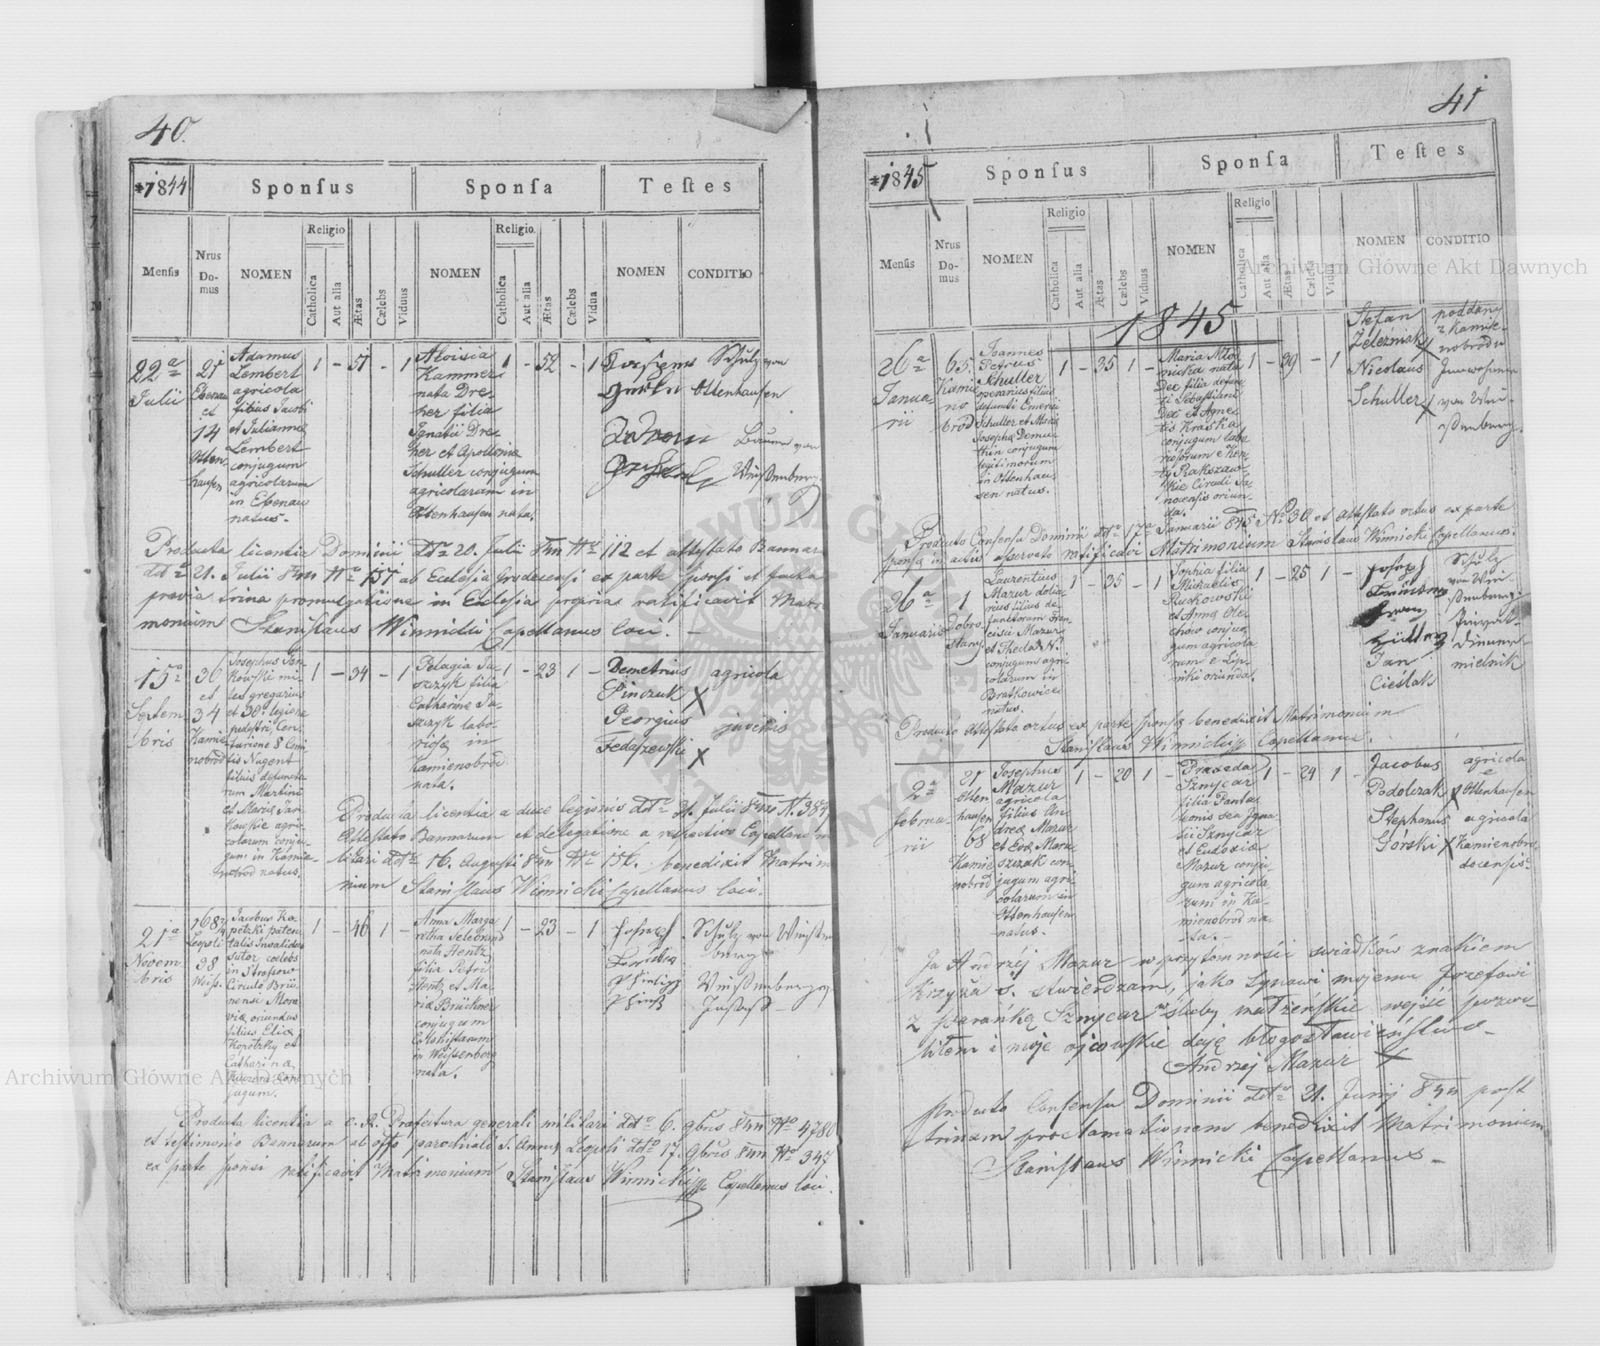 40.
*1844
Sponſus
Sponſa
Teſtes
Menſis
Nrus
Do-
mus
NOMEN
Religio
Catholica
Aut alia
Ætas
Cælebs
Viduus
NOMEN
Religio.
Catholica
Aut alia
Ætas
Cælebs
Vidua
NOMEN
CONDITIO
22a
Julii
21
Ebenau
et
14
Otten-
hausen
Adamus
Lembert
agricola
filius Jacobi
et Julianna
Lembert
conjugum
agricolarum
in Ebenau
natus.
1 - 51 - 1
Aloisia
Kammer
nata Dre-
her filia
Ignatii Dre-
her et Apollonia
Schuller conjugum
agricolarum in
Ottenhausen nata.
1 - 52 - 1
Schulz von
Ottenhausen
Producta licentia Dominii ddto 20. Julii 844 Nro 112 et attestato Bannor
ddto 21. Julii 844 Nro 157 ab Ecclesia Grodecensi ex parte sponsi et facta
previa trina promulgatione in Ecclesia propria ratificavit Matri
monium Stanislaus Winnicki Capellanus loci.
15a
Septem
bris
36
et
34
Kamie
nobrod
Josephus Jan-
kowski mi-
les gregarius
et 30a legione
pedestri, Cen-
turione 8 Comi
tis Nugent
filius defuncto
rum Martini
et Maria Jan
kowskie agri-
colarum conju-
gum in Kamie-
nobrod natus.
1 - 34 - 1
Pelagia
filia
Catharina
labo-
riosa in
Kamienobrod
nata.
1 - 23 1 -
Demetrius
Pinczuk X
Georgius
Fedaszewski X
agricola
Producta licentia a duce legionis ddto 31. Julii 844 N. 357
Attestato Bannorum et delegatione a respectivo Capellano m
litari ddto 16. Augusti 844 Nro 156. benedixit Matrim
nium Stanislaus Winnicki Capellanus loci.
21a
Novem
bris
168¾
Leopoli
38
Weiss.
Jacobus Ko-
petzki paten-
talis Invalidus
sutor coelebs
in Strassow
Circulo Brün
nensi Mora
via oriundus
filius Elia
Kopetzky et
Catharina
conju-
gum.
1 - 46 1 -
Anna Marga
retha
nata Hentz
filia Petri
Hentz et Ma
ria Brückner
conjugum
in Weissenberg
nata.
1 - 23 - 1
Joseph
Schulz von
Producta licentia a C. R. Prafectura generali militari ddto 6. 9bris 844 Nro 4780
et testimonio Bannorum ab offo parochiali S. Anna Leopoli ddto 17. 9bris 844 Nro 347
ex parte sponsi ratificavit Matrimonium Stanislaus Winnicki Capellanus loci.
41
*1845
Sponſus
Sponſa
Teſtes
Menſis
Nrus
Do-
mus
NOMEN
Religio
Catholica
Aut alia
Ætas
Cælebs
Viduus
NOMEN
Religio
Catholica
Aut alia
Ætas
Cælebs
Vidua
NOMEN
CONDITIO
1845
26a
Janua-
rii
65.
Kamie
no
brod
Joannes
Petrus
Schuller
operarius filius
defuncti Emeri
Schuller et Maria
Josepha
conjugum
legitimorum
in Ottenhau-
sen natus.
1 - 35 1 -
Maria
nata
Dec filia defun
ti Sebastiani
Dec et Agne-
tis Kraska
conjugum labo
riosorum
Circuli
oriun-
da.
1 - 39 - 1
Stefan
Żeleźniak X
Nicolaus
Schuller X
poddany
z Kamie-
nobrodu
Producto Consensu Dominii ddto 17a Januarii 845 No 30 et attestato ortus ex parte
sponsa in actis asservato ratificavi Matrimonium Stanislaus Winnicki Capellanus.
26a
Januarii
1
Dobro-
stany
Laurentius
Mazur
filius de-
functorum Fran
cisci Mazur
et Theda N.
conjugum agri
colarum in
Bratkowice
natus.
1 - 35 - 1
Sophia filia
Michaelis
Rutkowski
et Anna Ole-
chow conju
gum agricola
rum e Lip-
niki oriunda.
1 - 25 1 -
Joseph
Jan
Cieślak
Schulz
mielnik
Producto attestato ortus ex parte sponsa benedixit Matrimonium
Stanislaus Winnicki Capellanus.
2a
februa
rii
21
Otten
hausen
68
Kamie
nobrod
Josephus
Mazur
agricola
filius An
drea Mazur
et Eva
con-
jugum agri-
colarum in
Ottenhausen
natus.
1 - 20 1 -
Praxeda
Sznycar
filia Panta
leonis seu Igna
tii Sznycar
et Eudoxia
Mazur conju
gum agricola
rum in Ka-
mienobrod na-
ta.
1 - 24 1 -
Jacobus
Podolczak X
Stephanus
Górski X
agricola
e
Ottenhausen
agricola
Kamienobro
docensis
Ja Andrzéj Mazur w przytomności swiadków znakiem
Krzyża S. stwierdzam, jako synowi mojemu Jozefowi
z Paranką Sznycar w śluby małżenskie wejść pozwo-
liłem i moje ojcowskie daję błogosławieństwo
Andrzéj Mazur X
Producto Consensu Dominii ddto 21. Junij 844 post
trinam proclamationem benedixit Matrimonium
Stanislaus Winnicki Capellanus
Archiwum Główne Akt Dawnych
Archiwum Główne Akt Dawnych
ARCHIWUM GŁÓWNE AKT DAWNYCH